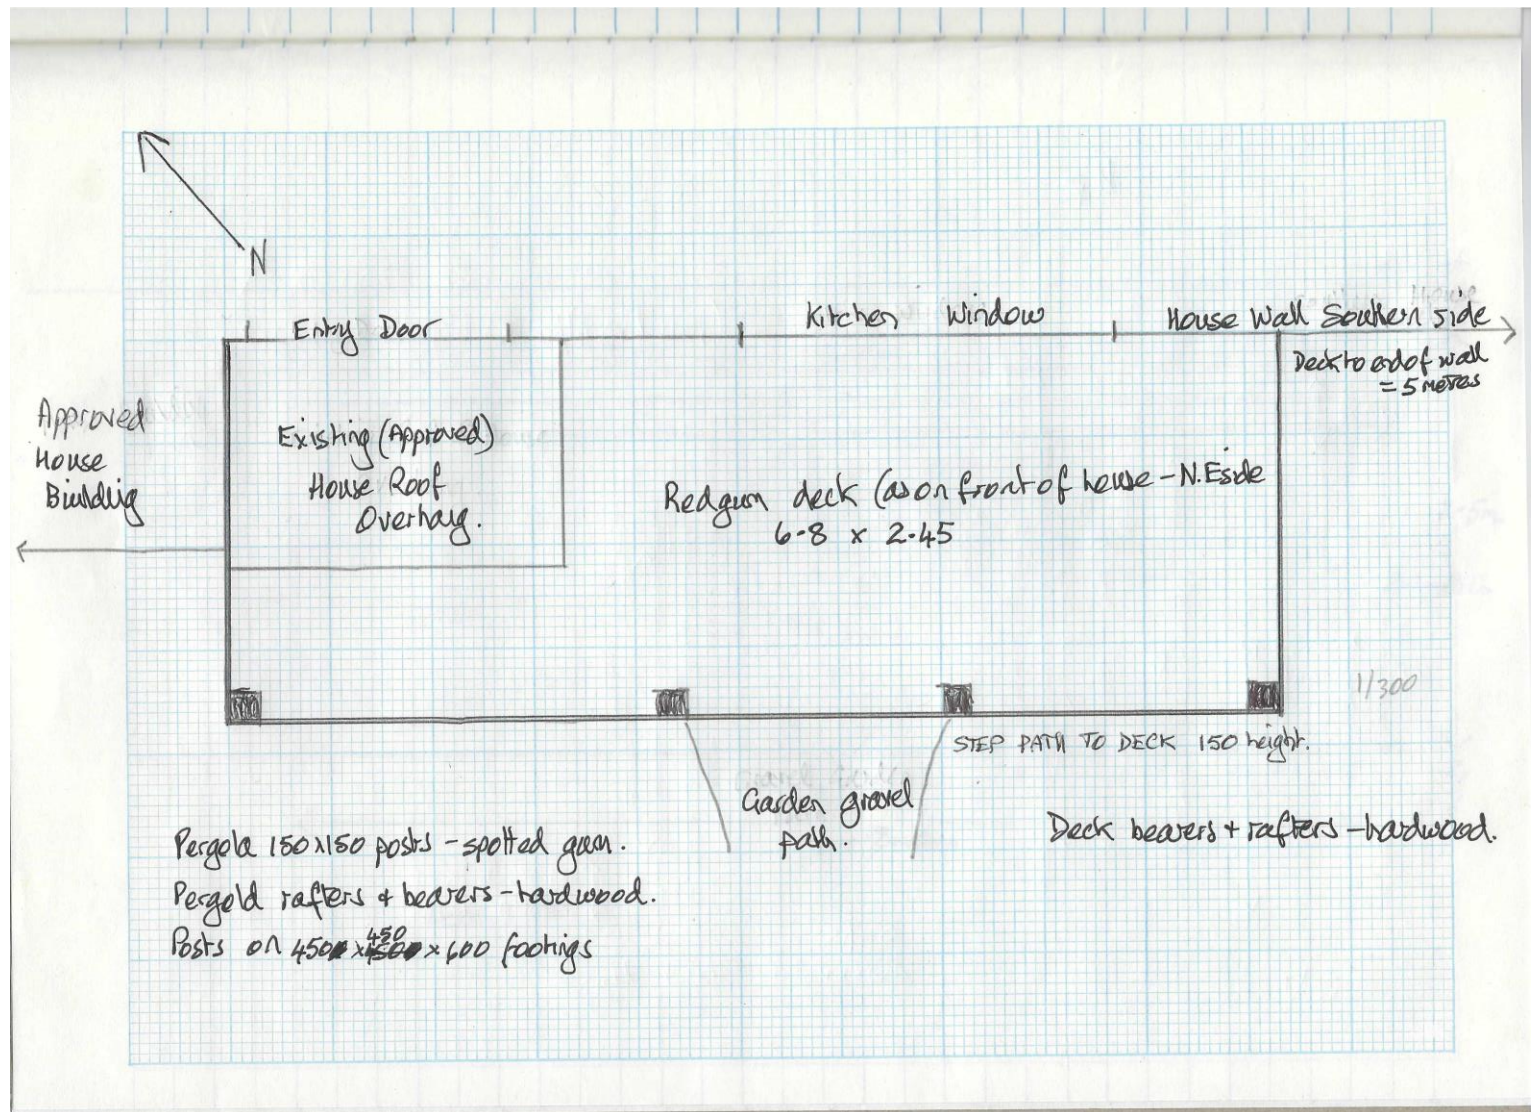 N
Entry Door
Kitchen Window
House Wall Southern side
Deck to end of wall
= 5 metres
Approved
House
Building
Existing (Approved)
House Roof
Overhang.
Redgum deck (as on front of house - N.E side
6.8 x 2.45
1/300
STEP PATH TO DECK 150 height.
Garden gravel
path.
Deck bearers + rafters - hardwood.
Pergola 150x150 posts - spotted gum.
Pergold rafters + bearers - hardwood.
Posts on 450 x 450 x 600 footings